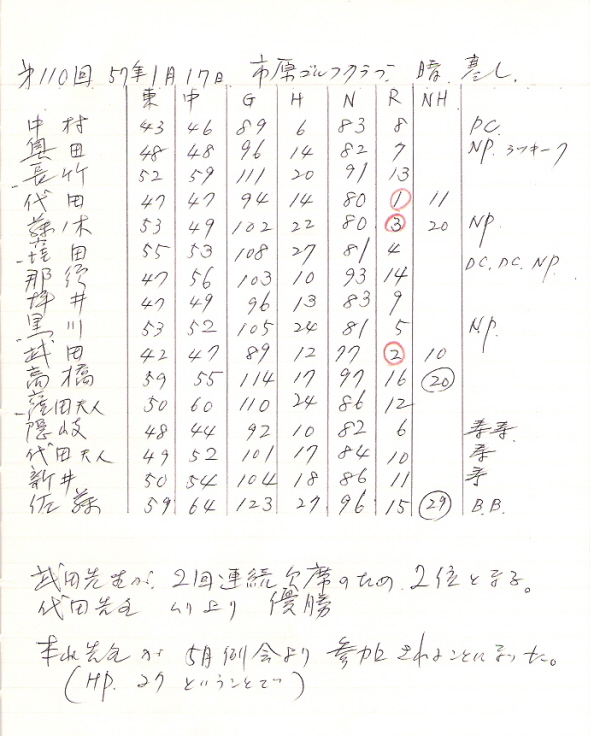 第110回 57年1月17日 市原ゴルフクラブ 晴
東 中 G H N R NH
中村 43 46 89 6 83 8 DC.
奥田 48 48 96 14 82 7 NP.
長竹 52 59 111 20 91 13
代田 47 47 94 14 80 1 11
藤木 53 49 102 22 80 3 20 NP
窪田 55 53 108 27 81 4
那須 47 56 103 10 93 14 DC. DC. NP.
坪井 47 49 96 13 83 9
黒川 53 52 105 24 81 5 N.P.
武田 42 47 89 12 77 2 10
高橋 59 55 114 17 97 16 20
窪田夫人 50 60 110 24 86 12
隠岐 48 44 92 10 82 6
代田夫人 49 52 101 17 84 10
新井 50 54 104 18 86 11
佐藤 59 64 123 27 96 15 29 B.B.
武田先生が、2回連続欠席のため、2位となる。
代田先生 より 優勝
先生が 5月例会より 参加されることになった。
(HP. 27 ということで)